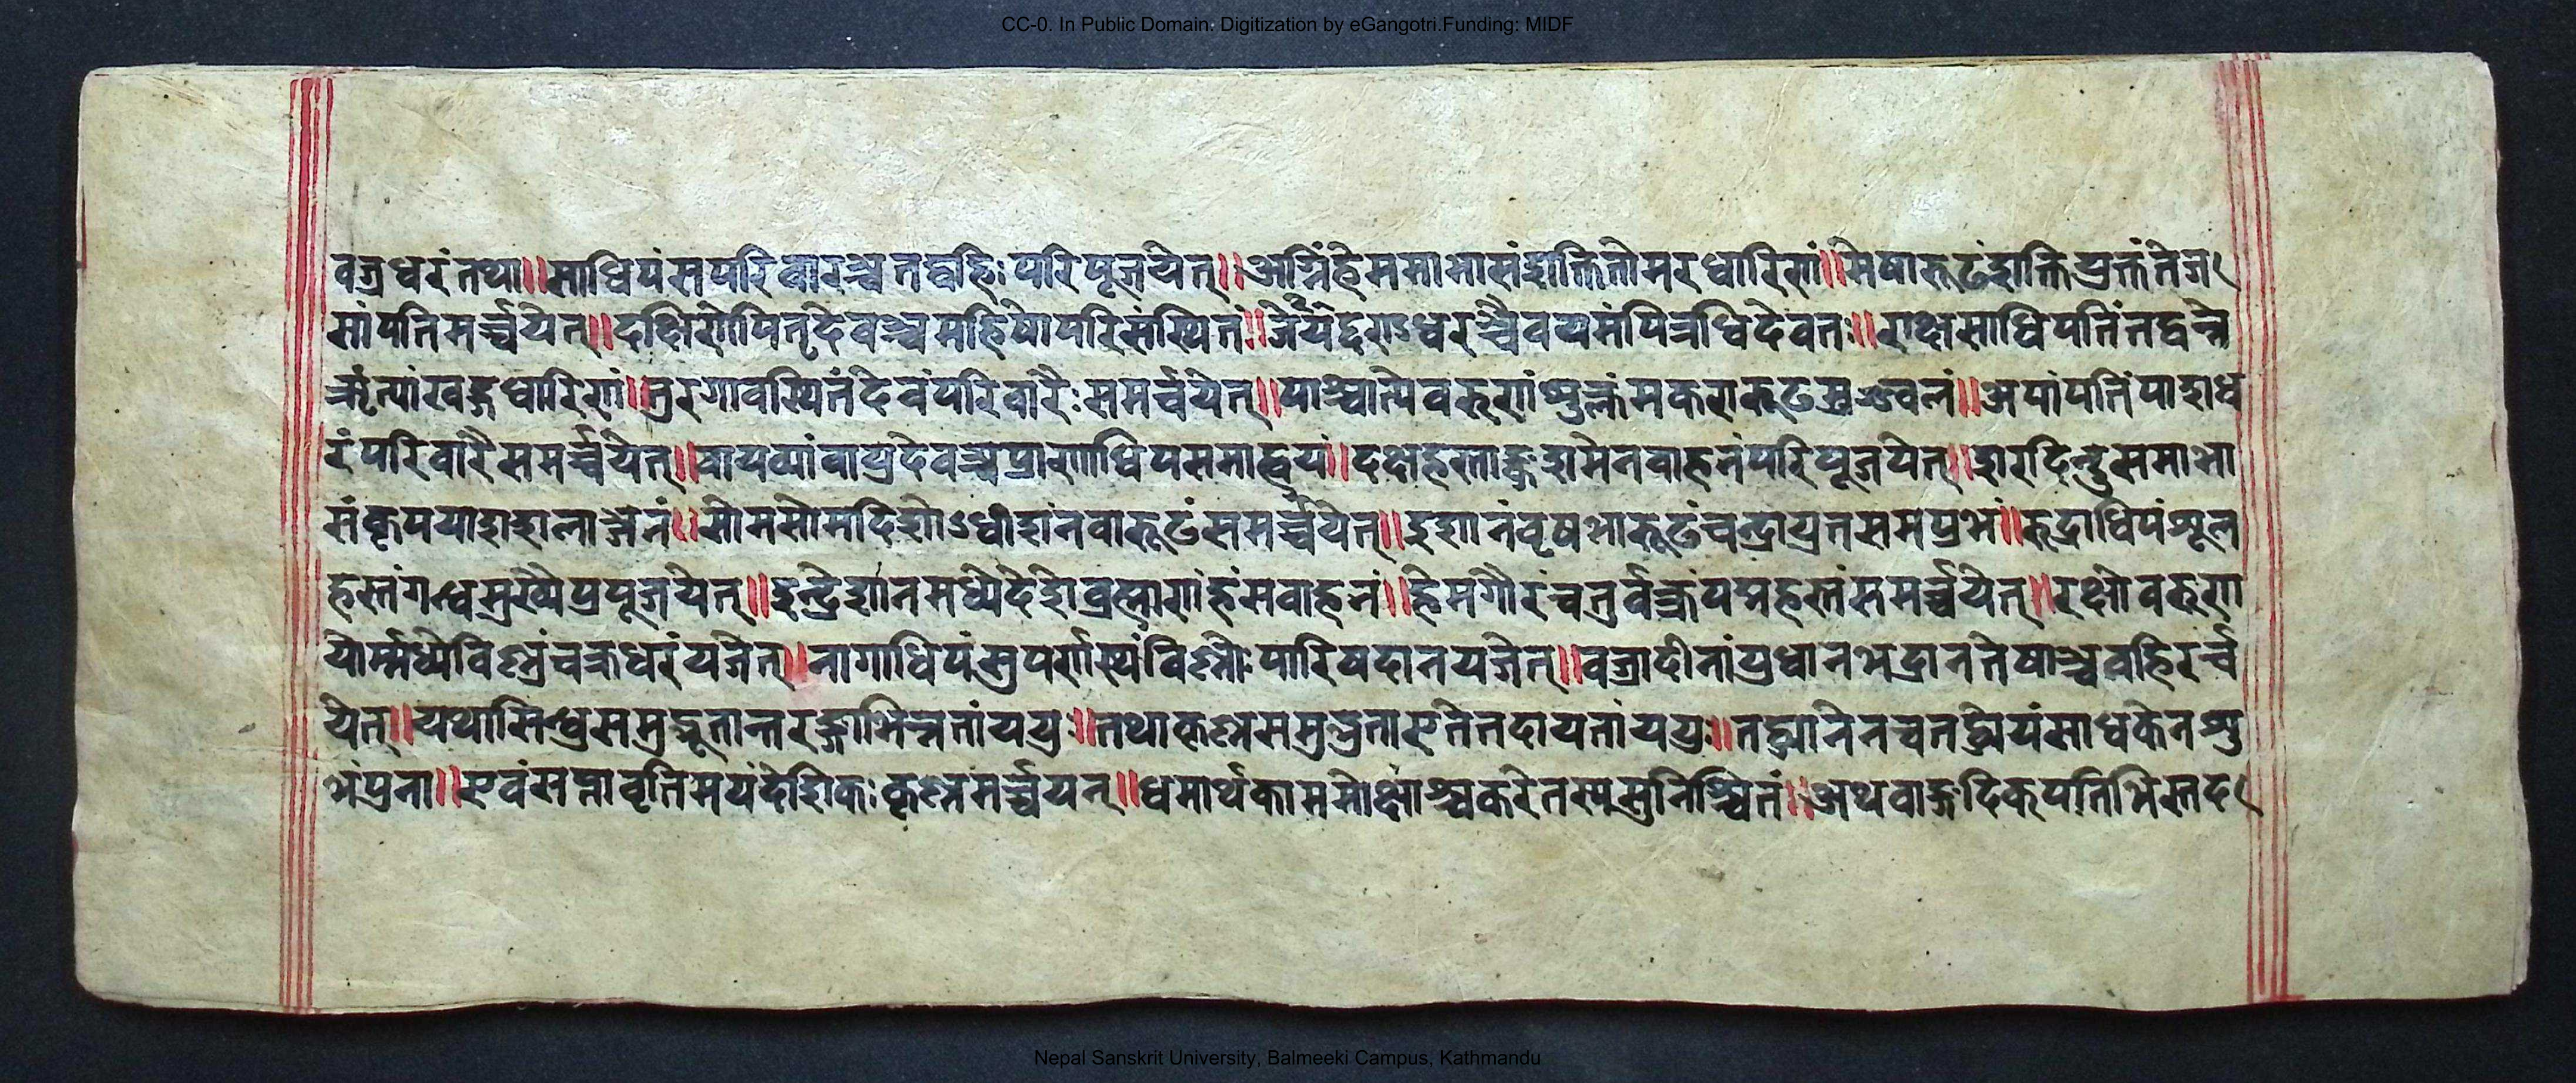 CC-0. In Public Domain. Digitization by eGangotri.Funding: MIDF
वज्रधरंतथा॥साधिपंसपरिवारञ्चतद्बहिःपरिपूजयेत्॥अग्निंहेमसमाभासंशक्तितोमरधारिणं॥मेषारूढंशक्तियुक्तंतेज
सांपतिमर्च्चयेत्॥दक्षिणेपितृदेवञ्चमहिषोपरिसंस्थितं॥ धरञ्चैवयमंपित्रधिदैवतः॥राक्षसाधिपतिंतद्वन्नै
ॠत्यांखड्गधारिणं॥नरगावस्थितंदेवंपरिवारैःसमर्च्चयेत्॥पाश्चात्येवरुणंशुक्लंमकरारूढमुज्वलं॥अपांपतिंपाशध
रंपरिवारैसमर्च्चयेत्॥वायव्यांवायुदेवञ्चप्राणाधिपसमाह्वयं॥ वाहनंपरिपूजयेत्॥शरदिन्दुसमाभा
सं ॥सोमसोमदिशोऽधीशंनवारूढंसमर्च्चयेत्॥इशानंवृषभारूढंचन्द्रायुतसमप्रभं॥रुद्राधिपंशूल
हस्तंगन्धमुख्यैप्रपूजयेत्॥इन्द्रेशानमध्येदेशेब्रह्माणंहंसवाहनं॥हेमगौरंचतुर्वक्त्रंपद्महस्तंसमर्च्चयेत्॥रक्षोवरुण
योर्म्मध्येविष्णुंचक्रधरंयजेत्॥नागाधिपंसुपर्णस्थंविष्णोःपारिषदानयजेत्॥वज्रादीनांप्रधानभद्रानतेषाञ्चवहिरर्च्च
येत्॥यथासिन्धुसमुद्भूतान्तरङ्गाभिन्नतांययुः॥तथाकृष्णसमुद्भुताएतेतदायतांययुः॥ साधकेनशु
भंप्रना॥एवंसप्तावृतिमयंदेशिकःकृष्णमर्च्चयन्॥धमार्थकाममोक्षाञ्चकरेतस्यसुनिश्चितं॥अथवाङ्गदिक्पतिभिस्तद
Nepal Sanskrit University, Balmeeki Campus, Kathmandu